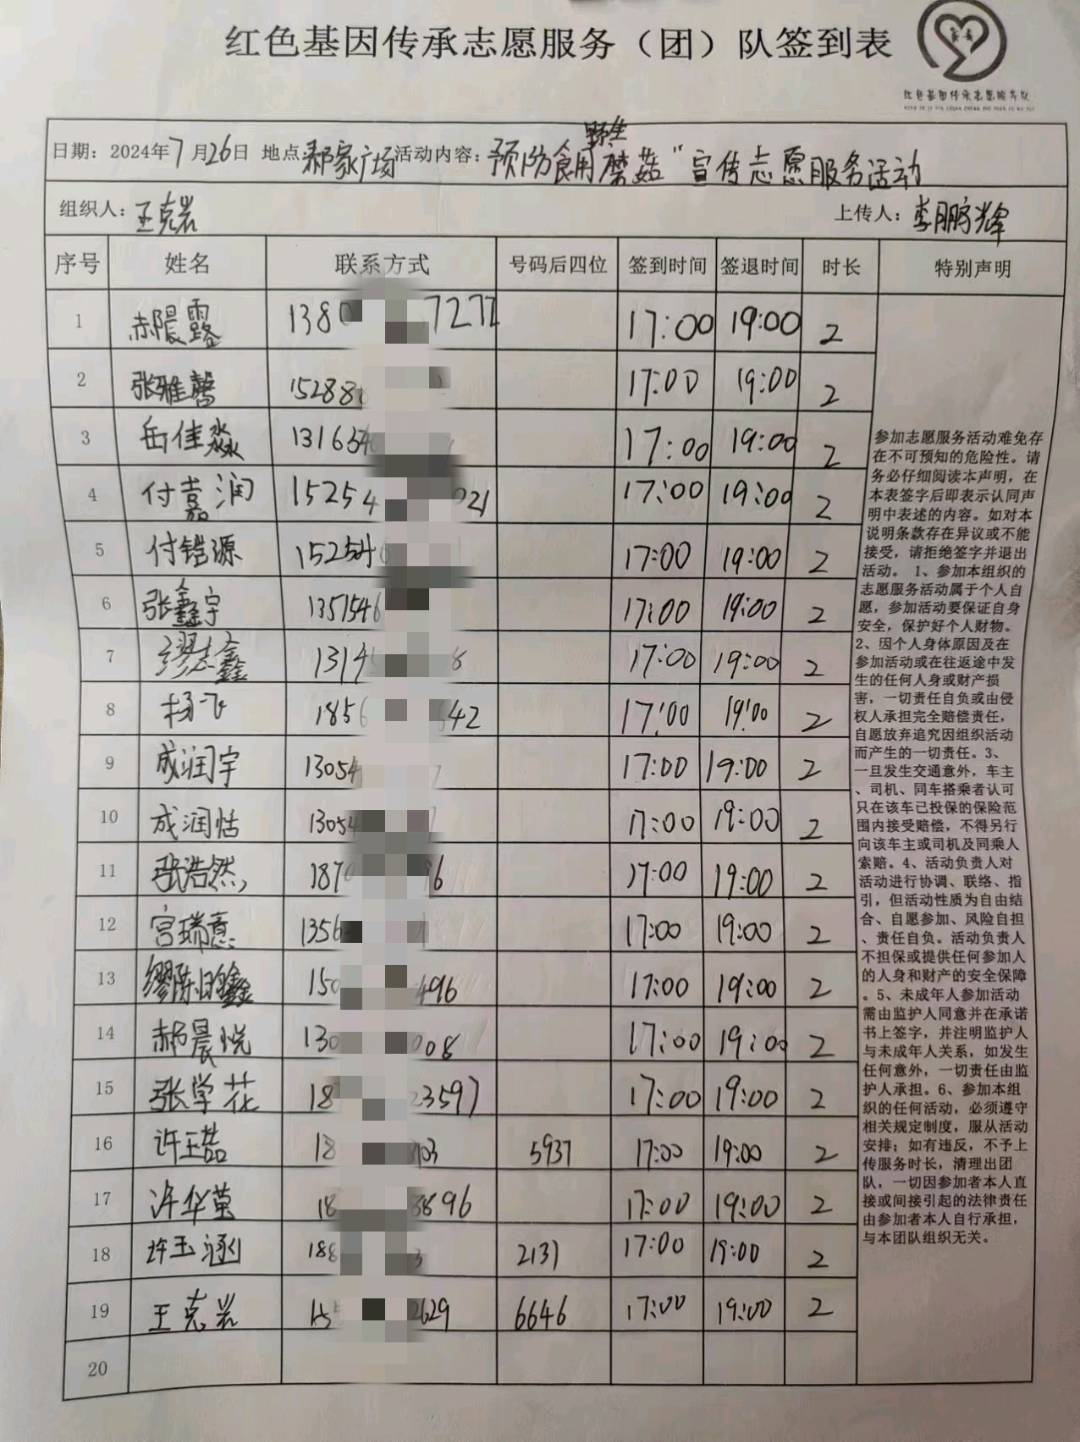 红色基因传承志愿服务（团）队签到表
红色基因传承志愿服务队
日期：2024年7月26日 地点 郝家广场 活动内容：预防食用野生蘑菇"宣传志愿服务活动
组织人：王克岩 上传人：李鹏辉
序号 姓名 联系方式 号码后四位 签到时间 签退时间 时长 特别声明
1 郝晨露 17:00 19:00 2
2 张雅馨 17:00 19:00 2
3 岳佳淼 17:00 19:00 2
4 付嘉润 17:00 19:00 2
5 付锴源 17:00 19:00 2
6 张鑫宇 17:00 19:00 2
7 缪志鑫 17:00 19:00 2
8 杨飞 17:00 19:00 2
9 成润宇 17:00 19:00 2
10 成润恬 17:00 19:00 2
11 张浩然 17:00 19:00 2
12 宫瑞意 17:00 19:00 2
13 17:00 19:00 2
14 郝晨悦 17:00 19:00 2
15 张学花 17:00 19:00 2
16 5937 17:00 19:00 2
17 许华茵 17:00 19:00 2
18 许玉涵 2131 17:00 19:00 2
19 王克岩 6646 17:00 19:00 2
20
参加志愿服务活动难免存
在不可预知的危险性。请
务必仔细阅读本声明，在
本表签字后即表示认同声
明中表述的内容。如对本
说明条款存在异议或不能
接受，请拒绝签字并退出
活动。 1、参加本组织的
志愿服务活动属于个人自
愿，参加活动要保证自身
安全，保护好个人财物。
2、因个人身体原因及在
参加活动或在往返途中发
生的任何人身或财产损
害，一切责任自负或由侵
权人承担完全赔偿责任，
自愿放弃追究因组织活动
而产生的一切责任。3、
一旦发生交通意外，车主
、司机、同车搭乘者认可
只在该车已投保的保险范
围内接受赔偿，不得另行
向该车主或司机及同乘人
索赔。4、活动负责人对
活动进行协调、联络、指
引，但活动性质为自由结
合、自愿参加、风险自担
、责任自负。活动负责人
不担保或提供任何参加人
的人身和财产的安全保障
。5、未成年人参加活动
需由监护人同意并在承诺
书上签字，并注明监护人
与未成年人关系，如发生
任何意外，一切责任由监
护人承担。6、参加本组
织的任何活动，必须遵守
相关规定制度，服从活动
安排；如有违反，不予上
传服务时长，清理出团
队，一切因参加者本人直
接或间接引起的法律责任
由参加者本人自行承担，
与本团队组织无关。